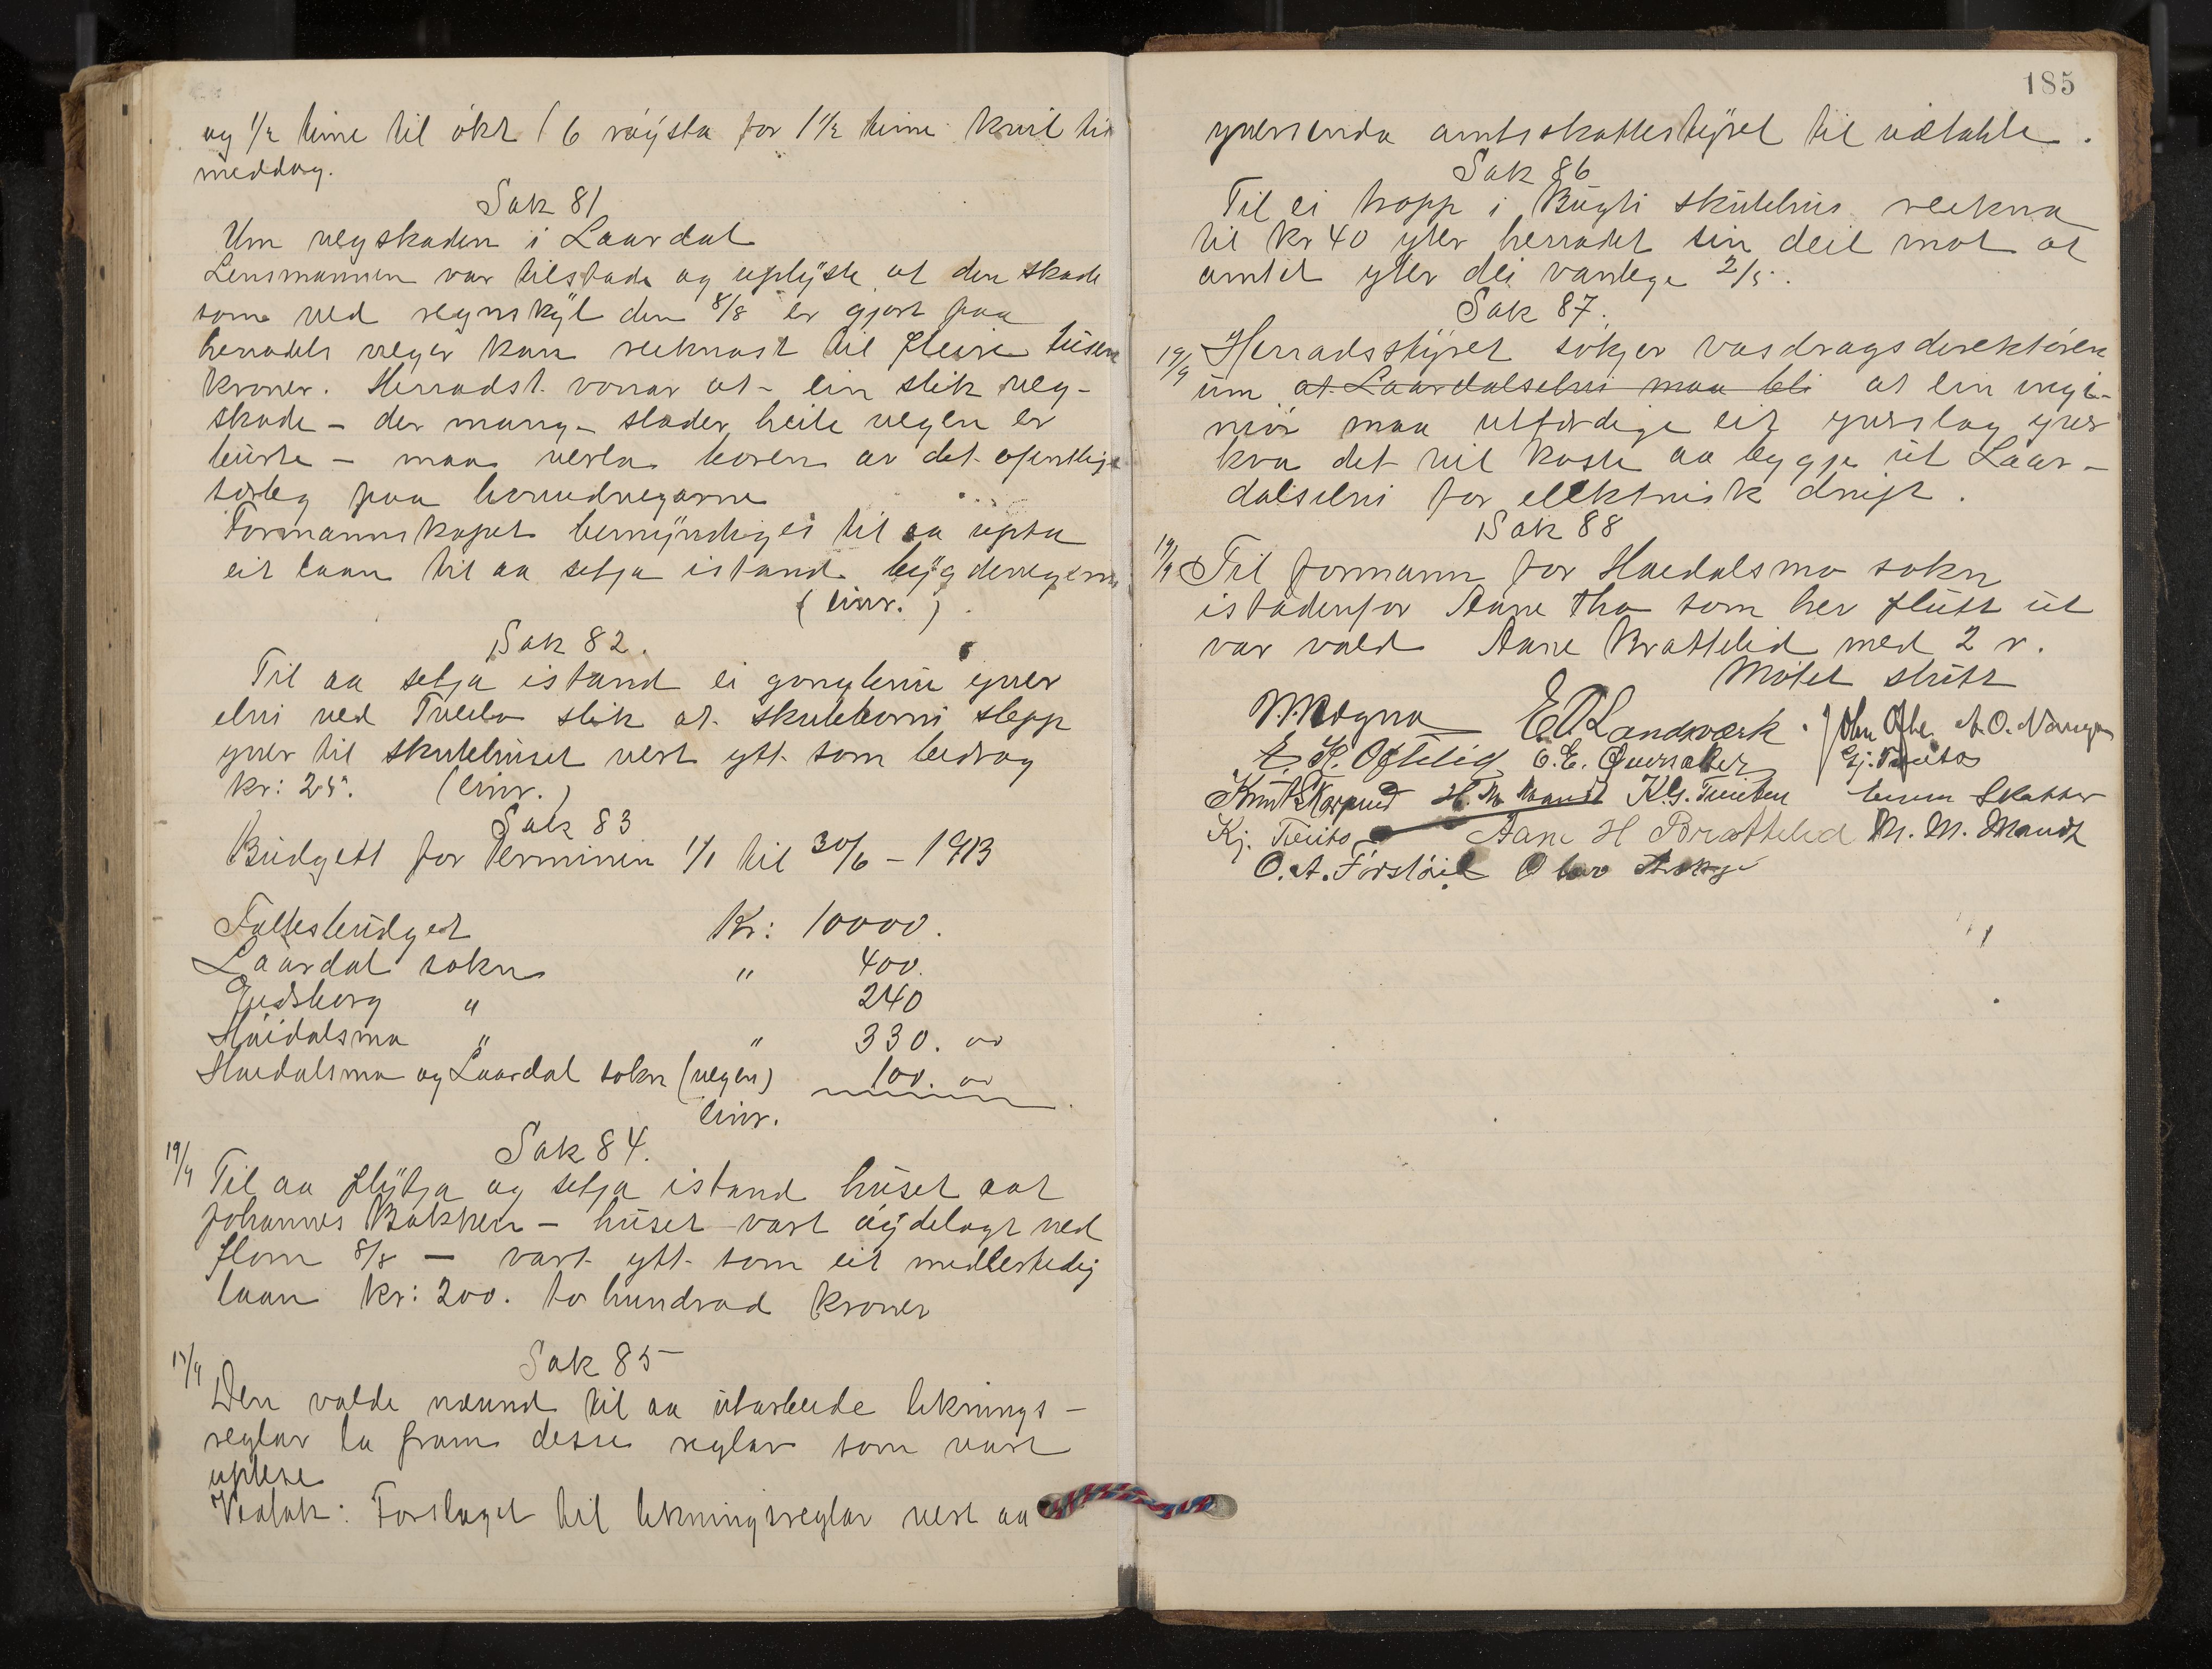 og 1/2 time til økt (6 røysta for 1 1/2 time kvil til
middag.
Sak 81
Um vegskaden i Laardal
Lensmannen var tilstade og uplyste at den skade
som ved regnskyl den 8/8 er gjort paa
herradets veger kan reiknast til fleire tusen
kroner. Herradst. vonar at ein slik veg-
skade - der mang stader heile vegen er
burte - maa verta boren av det ofentlige
serleg paa hovudvegarne
Formannskapet bemyndiges til aa upta
eit laan til aa setja istand bygdevegerne
(einr.)
Sak 82.
Til aa setja istand ei gongbru yver
elvi ved Tveito slik at skuleborni slepp
yver til skulehuset vert ytt som bidrag
kr: 25. (einr.)
Sak 83
Budgett for Terminen 1/1 til 30/6 - 1913
Fellesbudget Kr: 10000.
Laardal sokn " 400.
Eidsborg " 240
Høidalsmo " " 330. 00
Høidalsmo og Laardal sokn (vegen) 100. 00
einr.
Sak 84.
19/9 Til aa flytja og setja istand huset aat
Johannes Bakken - huset vart øydelagt ved
flom 8/8 - vart ytt som eit midlertidig
laan kr: 200. to hundrad kroner
Sak 85
19/9
Den valde nemnd til aa utarbeide liknings-
reglar la fram desse reglar som vart
uplese
Vedtak: Forslaget til likningsreglar vert aa
185
yversenda amtsskattestyret til vedtakte.
Sak 86
Til ei tropp i Bugti skulehus reikna
til kr 40 yter herradet sin deil mot at
amtet yter dei vanlege 2/5.
Sak 87.
19/9 Herradsstyret søkjer vasdragsdirektøren
um at Laardalselvi maa bli at ein ingi-
niør maa utferdige eit yverslag yver
kva det vil koste aa byggje ut Laar-
dalselvi for elektrisk drift.
Sak 88
19/9 Til formann for Høidalsmo sokn
istadenfor Aane Tho som her flutt ut
var vald Aane Brattelid med 2 r.
Møtet slutt
E Landsværk John Ofte A. O. Norregn
K. Oftelid E. E. Øverraker Gj. Tveito
Knut Skarprud H. M. Mandt K. G. Tveiten Skatter
Kj. Tveito Aane H Brattelid M. M. Mandt
O. A. Førstøil Olav